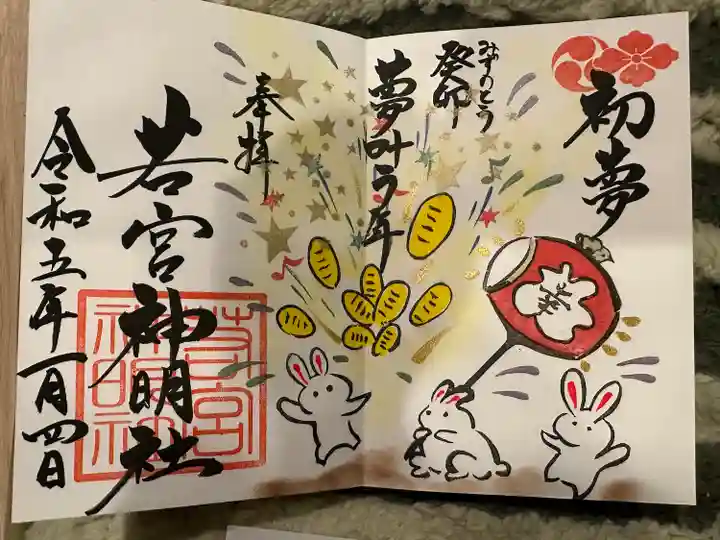 初夢
みずのとう
癸卯
夢叶う年
奉拝
若宮神明社
令和五年一月四日